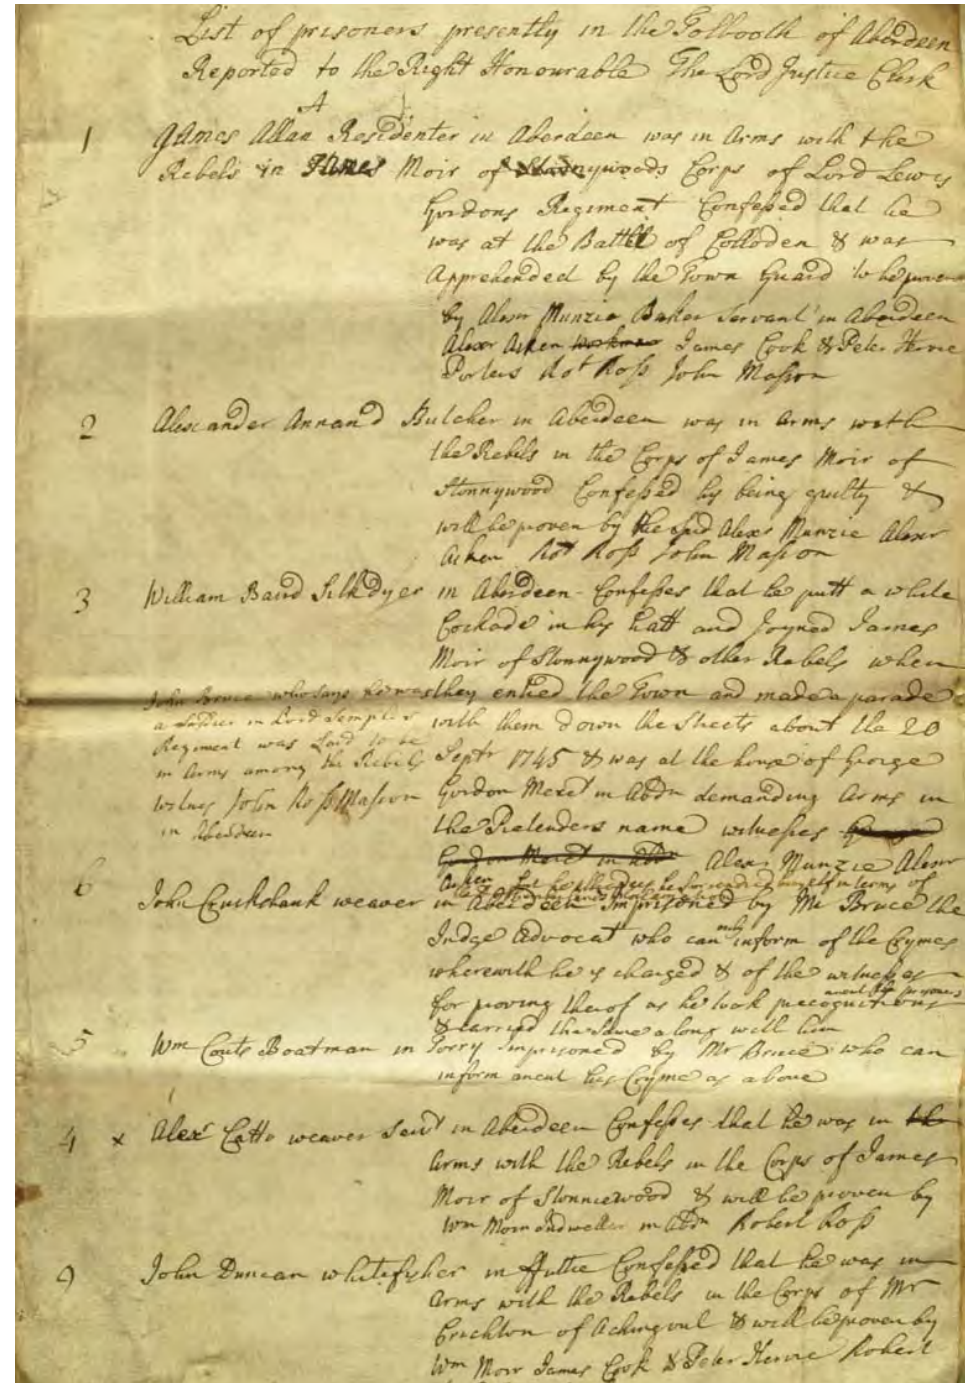 List of prisoners presently in the Tolbooth of Aberdeen
Reported to the Right Honourable The Lord Justice Clerk
A
1 James Allan Residenter in Aberdeen was in Arms with the
Rebels in James Moir of Stonnywoods Corps of Lord Lewis
Gordons Regiment Confessed that he
was at the Battle of Colloden & was
Apprehended by the Town Guard to be proven
by Alexr Munzie Baker Servant in Aberdeen
Alexr Aiken workman James Cook & Peter Hervie
Porters Robt Ross John Masson
2 Alexander Annand Butcher in Aberdeen was in arms with
the Rebels in the Corps of James Moir of
Stonnywood Confessed his being guilty &
will be proven by the said Alexr Munzie Alexr
Aiken Robt Ross John Masson
3 William Baird Silk Dyer in Aberdeen Confesses that he putt a white
Cockade in his hatt and Joyned James
Moir of Stonnywood & other Rebels when
they entied the Town and made a parade
with them down the streets about the 20
Septr 1745 & was at the house of George
Gordon Mercht in Abdn demanding Arms in
the Pretenders name witnesses
Gordon Mercht in Abdn Alexr Munzie Alexr
Aiken but he alledges he surrendred himself in terms of
John Bruce who says he was
a Soldier in Lord Semples
Regiment was to be
in Arms among the Rebels
witnes John Ross Masson
in Aberdeen
6 John Cruikshank weaver in Aberdeen Imprisoned by Mr Bruce the
Judge Advocat who can only inform of the Crymes
wherewith he is charged & of the witnesses
for proving therof as he took precognitions anent the prisoners
& carried the same along with him
5 Wm Couts Boatman in Torry Imprisoned by Mr Bruce who can
inform anent his Cryme as above
4 x Alexr Catto weaver Servt in Aberdeen Confesses that he was in the
Arms with the Rebels in the Corps of James
Moir of Stonniewood & will be proven by
Wm Moir Indweller in Abdn Robert Ross
9 John Duncan whitefisher in Futtie Confessed that he was in
Arms with the Rebels in the Corps of Mr
Crichton of Achingoul & will be proven by
Wm Moir James Cook & Peter Hervie Robert